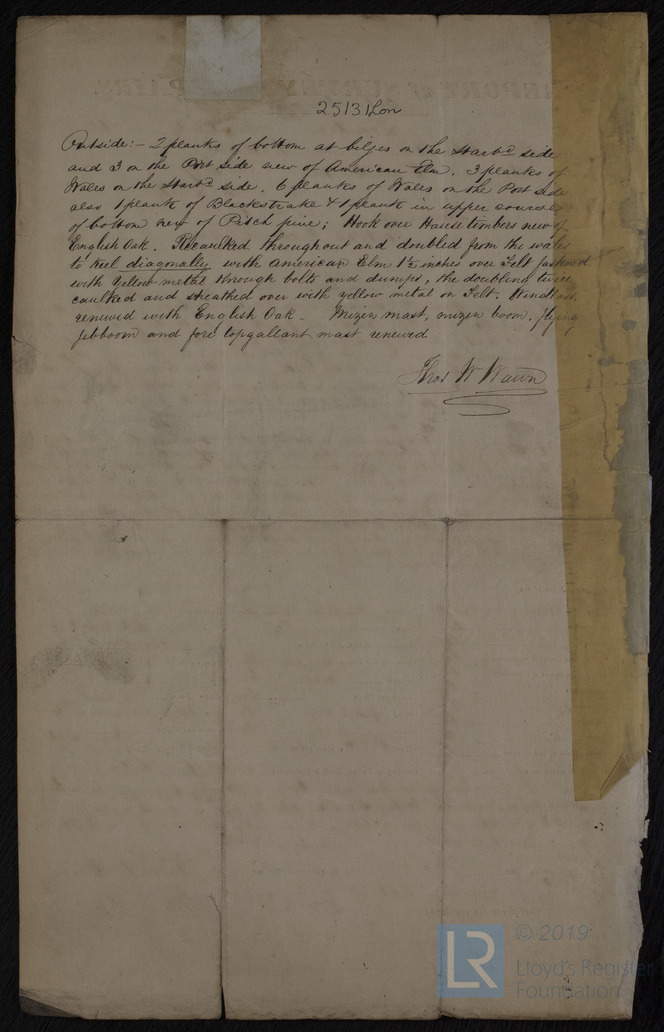 25131 Lon
Outside:- 2 planks of bottom at bilges on the Starbd side
and 3 on the Port side new of American Elm. 3 planks of
Wales on the Starbd side. 6 planks of Wales on the Port side
also 1 plank of Blackstrake & 1 plank in upper course
of bottom new of Pitch pine; Hook over Hause timbers new of
English Oak. Recaulked throughout and doubled from the wales
to keel diagonally with American Elm 1½ inches over Felt fastened
with yellow metal through bolts and dumps, the doubling twice
caulked and sheathed over with yellow metal on Felt. Windlass
renewed with English Oak - Mizen mast, mizen boom, flying
Jibboom and fore topgallant mast renewed
Thos W Wawn
LR © 2019
Lloyd's Register
Foundation